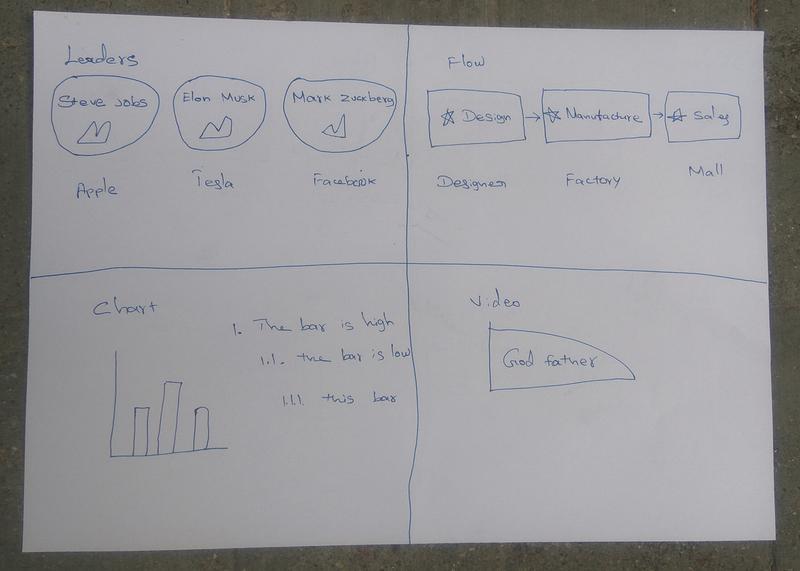 Leaders
Steve Jobs Elon Musk Mark Zuckberg
Apple Tesla Facebook
Flow
Design Manufacture Sales
Designer Factory Mall
Chart
1. The bar is high
1.1. the bar is low
1.1.1. this bar
Video
God father